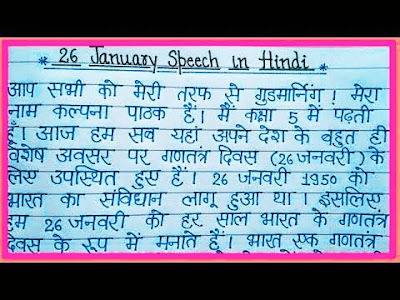 * 26 January Speech in Hindi *
आप सभी को मेरी तरफ से गुडमार्निंग ! मेरा
नाम कल्पना पाठक है। मैं कक्षा 5 में पढ़ती
हूँ। आज हम सब यहां अपने देश के बहुत ही
विशेष अवसर पर गणतंत्र दिवस (26 जनवरी) के
लिए उपस्थित हुए हैं। 26 जनवरी 1950 को
भारत का संविधान लागू हुआ था। इसलिए
हम 26 जनवरी को हर साल भारत के गणतंत्र
दिवस के रूप में मनाते हैं। भारत एक गणतंत्र